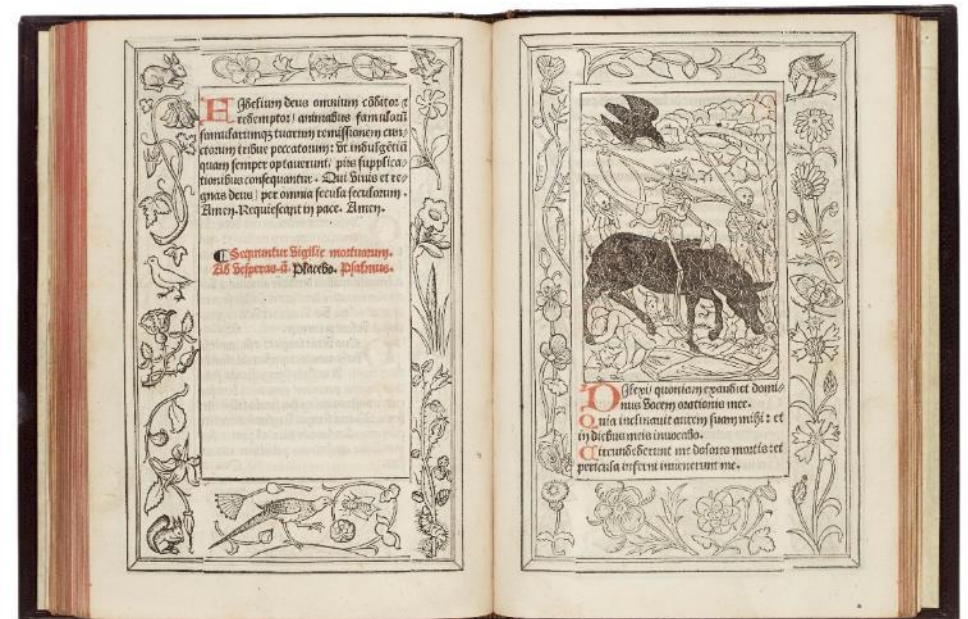 Fidelium deus omnium cōditor ⁊
redemptor / animabus famulorū
famularumqꝫ tuarum remissionem cun⸗
ctorum tribue peccatorum: vt indulgētiā
quam semper optauerunt / piis supplica⸗
tionibus consequantur. Qui viuis et re⸗
gnas deus / per omnia secula seculorum.
Amen. Requiescant in pace. Amen.
⸿ Sequuntur vigilie mortuorum.
Ad vesperas ā. Placebo. Psalmus.
Dilexi / quoniam exaudiet domi⸗
nus vocem orationis mee.
Quia inclinauit aurem suam mihi: et
in diebus meis inuocabo.
Circundederunt me dolores mortis: et
pericula inferni inuenerunt me.